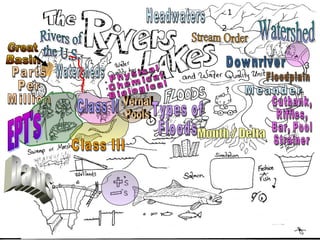 The
Rivers
Lakes
and Water Quality Unit
Headwaters
1
2
Stream Order
Watershed
Rivers of
the U.S.
Great
Basin
Parts
Per
Million
Watersheds
Water
Physical
Chemical
Biological
Downriver
Floodplain
Meander
Cutbank,
Riffles,
Bar, Pool
Strainer
FLOODS
Class V
Vernal
Pools
Types of
Floods
EPT's
Class III
Mouth / Delta
Swamp or Marsh
Wetlands
Dams
+'s
-'s
Salmon
Fish